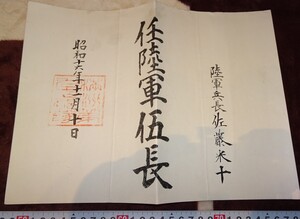 陸軍兵長佐藤米十
任陸軍伍長
昭和十六年十一月十日